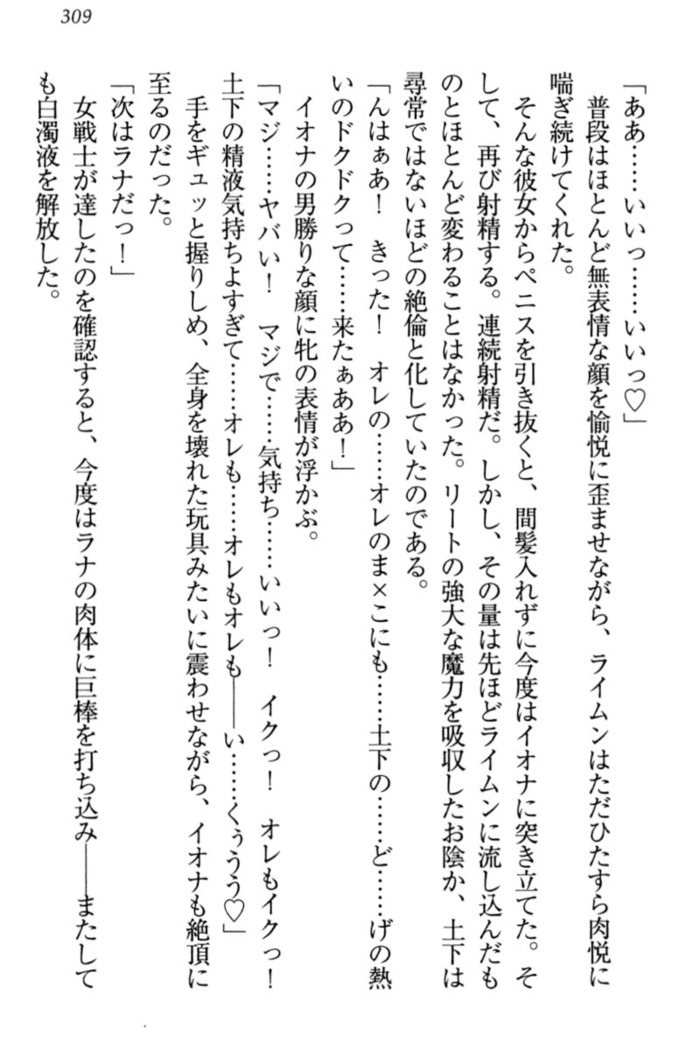 309
「ああ……いいっ……いいっ♡」
　普段はほとんど無表情な顔を愉悦に歪ませながら、ライムンはただひたすら肉悦に
喘ぎ続けてくれた。
　そんな彼女からペニスを引き抜くと、間髪入れずに今度はイオナに突き立てた。そ
して、再び射精する。連続射精だ。しかし、その量は先ほどライムンに流し込んだも
のとほとんど変わることはなかった。リートの強大な魔力を吸収したお陰か、土下は
尋常ではないほどの絶倫と化していたのである。
「んはぁあ！　きった！　オレの……オレのま×こにも……土下の……ど……げの熱
いのドクドクって……来たぁああ！」
　イオナの男勝りな顔に牝の表情が浮かぶ。
「マジ……ヤバい！　マジで……気持ち……いいっ！　イクっ！　オレもイクっ！
土下の精液気持ちよすぎて……オレも……オレもオレも――い……くぅうう♡」
　手をギュッと握りしめ、全身を壊れた玩具みたいに震わせながら、イオナも絶頂に
至るのだった。
「次はラナだっ！」
　女戦士が達したのを確認すると、今度はラナの肉体に巨棒を打ち込み――またして
も白濁液を解放した。